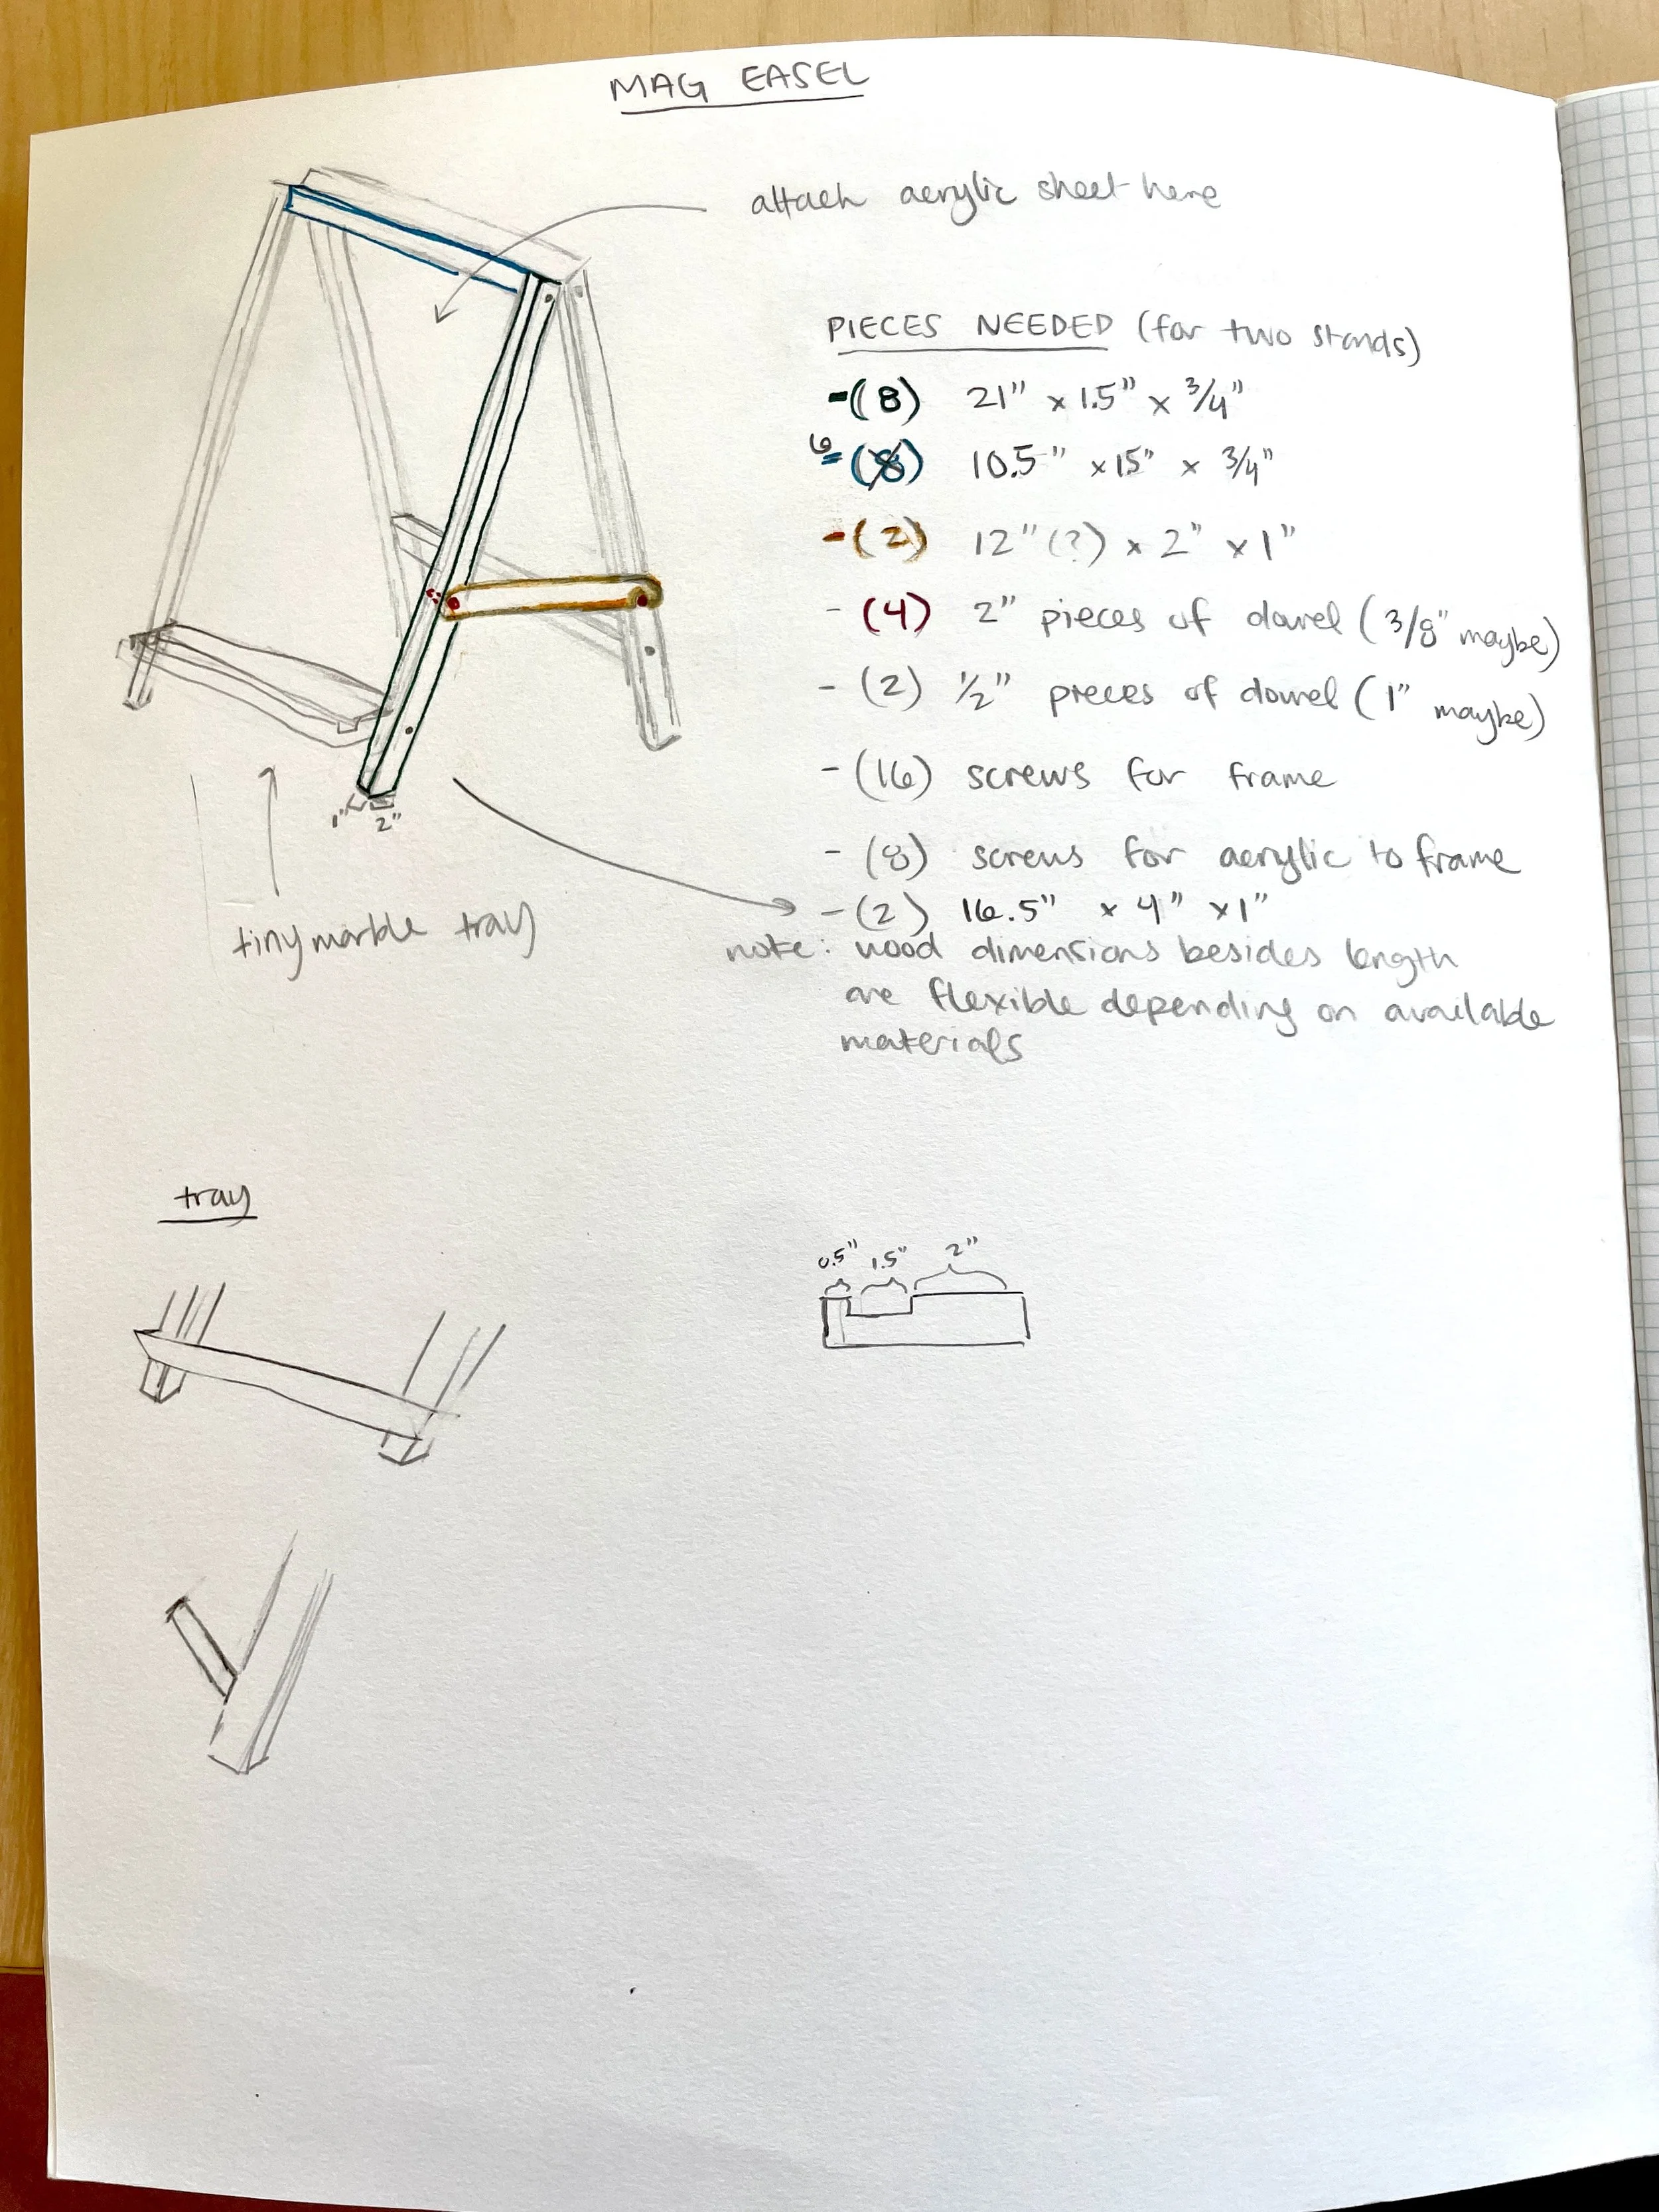 MAG EASEL
attach acrylic sheet here
PIECES NEEDED (for two stands)
-(8) 21" x 1.5" x 3/4"
6 -(8) 10.5" x 15" x 3/4"
-(2) 12"(?) x 2" x 1"
- (4) 2" pieces of dowel (3/8" maybe)
- (2) 1/2" pieces of dowel (1" maybe)
- (16) screws for frame
- (8) screws for acrylic to frame
- (2) 16.5" x 4" x 1"
note: wood dimensions besides length
are flexible depending on available
materials
1" 2"
tiny marble tray
tray
0.5" 1.5" 2"